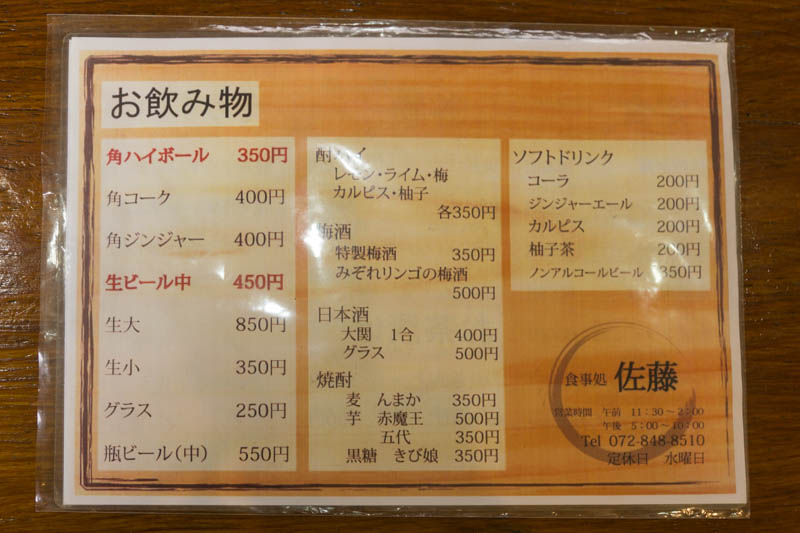 お飲み物
角ハイボール 350円
角コーク 400円
角ジンジャー 400円
生ビール中 450円
生大 850円
生小 350円
グラス 250円
瓶ビール(中) 550円
酎ハイ
レモン・ライム・梅
カルピス・柚子
各350円
梅酒
特製梅酒 350円
みぞれリンゴの梅酒
500円
日本酒
大関 1合 400円
グラス 500円
焼酎
麦 んまか 350円
芋 赤魔王 500円
五代 350円
黒糖 きび娘 350円
ソフトドリンク
コーラ 200円
ジンジャーエール 200円
カルピス 200円
柚子茶 200円
ノンアルコールビール 350円
食事処 佐藤
営業時間 午前 11:30～2:00
午後 5:00～10:00
Tel 072-848-8510
定休日 水曜日